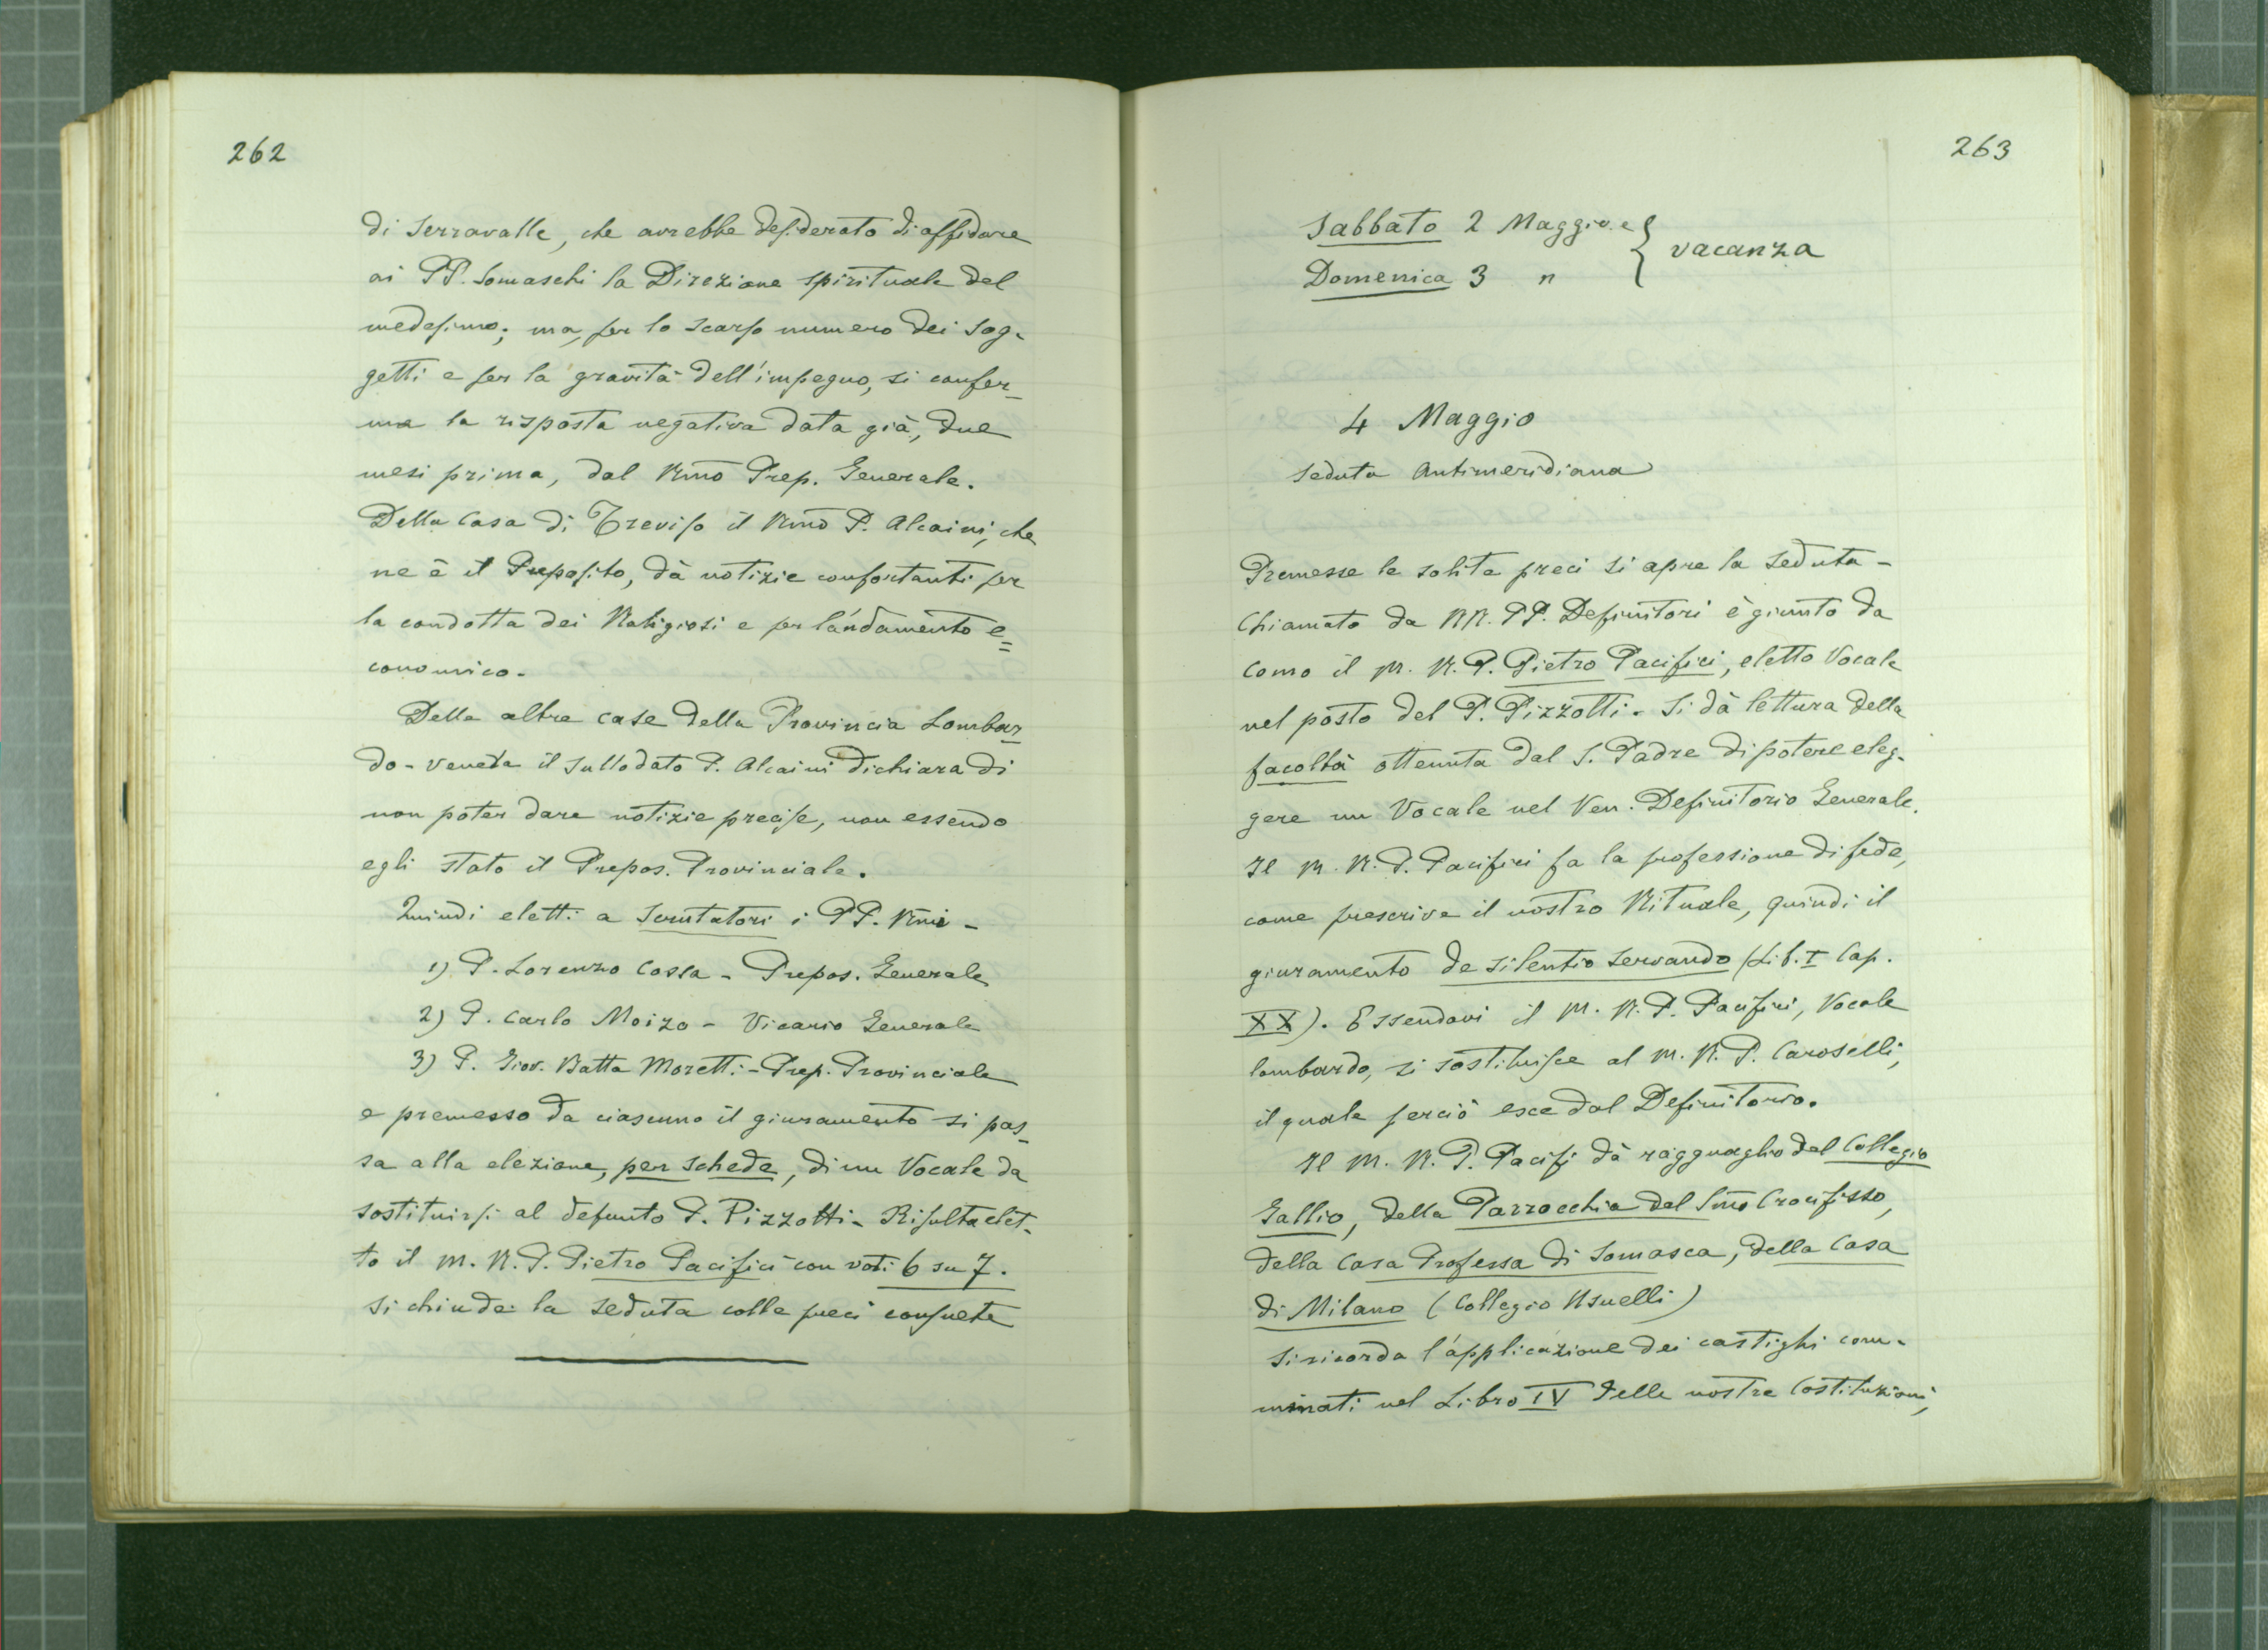 262
di Serravalle, che avrebbe desiderato di affidare
ai PP. Somaschi la Direzione spirituale del
medesimo; ma, per lo scarso numero dei sog-
getti e per la gravità dell'impegno, si confer-
ma la risposta negativa data già, due
mesi prima, dal Rmo Prep. Generale.
Della Casa di Treviso il Rmo P. Alcaini, che
ne è il Preposito, dà notizie confortanti per
la condotta dei Religiosi e per l'andamento e=
conomico.
Delle altre case della Provincia Lombar-
do-veneta il sullodato P. Alcaini dichiara di
non poter dare notizie precise, non essendo
egli stato il Prepos. Provinciale.
Quindi eletti a Scrutatori i PP. Rmi -
1) P. Lorenzo Cossa - Prepos. Generale
2) P. Carlo Moizo - Vicario Generale
3) P. Giov. Batta Moretti - Prep. Provinciale
e premesso da ciascuno il giuramento si pas-
sa alla elezione, per schede, di un Vocale da
sostituirsi al defunto P. Pizzotti - Risulta elet-
to il M. R. P. Pietro Pacifici con voti 6 su 7.
Si chiude la seduta colle preci consuete
263
Sabbato 2 Maggio e
Domenica 3 " } vacanza
4 Maggio
Seduta Antimeridiana
Premesse le solite preci si apre la seduta -
Chiamato da RR. PP. Definitori è giunto da
Como il M. R. P. Pietro Pacifici, eletto Vocale
nel posto del P. Pizzotti. Si dà lettura della
facoltà ottenuta dal S. Padre di potere eleg-
gere un Vocale nel Ven. Definitorio Generale.
Il M. R. P. Pacifici fa la professione di fede,
come prescrive il nostro Rituale, quindi il
giuramento de silentio servando (Lib. I Cap.
XX). Essendovi il M. R. P. Pacifici, Vocale
lombardo, si sostituisce al M. R. P. Caroselli,
il quale perciò esce dal Definitorio.
Il M. R. P. Pacifi dà ragguaglio del Collegio
Gallio, della Parrocchia del Smo Crocifisso,
della Casa Professa di Somasca, della Casa
di Milano (Collegio Usuelli)
Si ricorda l'applicazione dei castighi com-
minati nel Libro IV delle nostre Costituzioni,